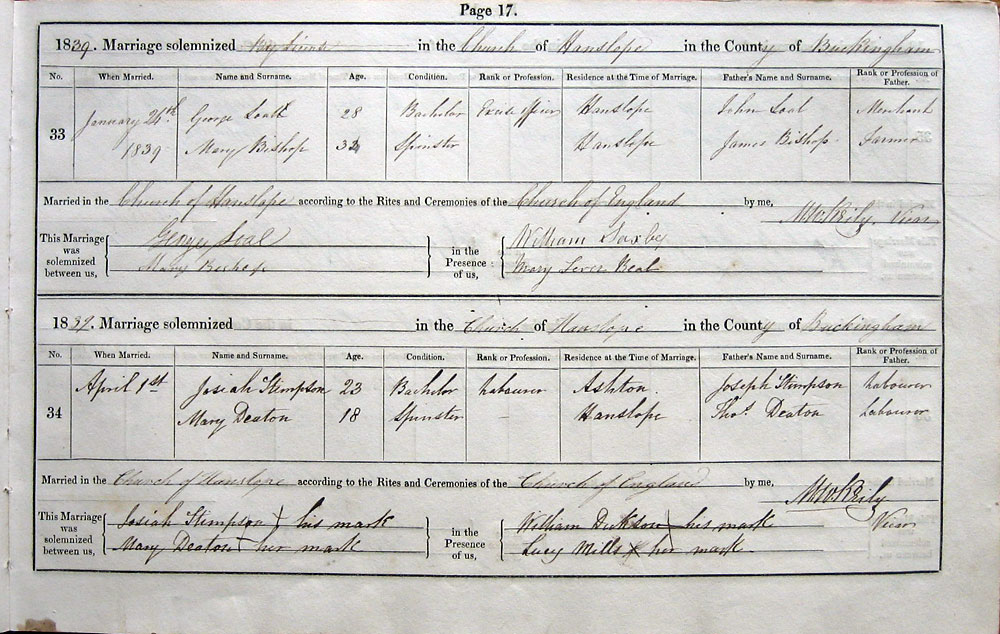 Page 17.
1839. Marriage solemnized by license in the Church of Hanslope in the County of Buckingham
No. When Married. Name and Surname. Age. Condition. Rank or Profession. Residence at the Time of Marriage. Father's Name and Surname. Rank or Profession of Father.
33 January 26th George Bachelor Excise officer Hanslope John Seal Merchant 28
1839 Mary Bishop Spinster Hanslope James Bishop Farmer
Married in the Church of Hanslope according to the Rites and Ceremonies of the Church of England by me, Vicar
This Marriage was solemnized between us, George Seal in the Presence of us, William Saxby
Mary Bishop Mary Beal
1839. Marriage solemnized in the Church of Hanslope in the County of Buckingham
No. When Married. Name and Surname. Age. Condition. Rank or Profession. Residence at the Time of Marriage. Father's Name and Surname. Rank or Profession of Father.
34 April 1st Josiah Stimpson 23 Bachelor Labourer Ashton Joseph Stimpson Labourer
Mary Deaton 18 Spinster - Hanslope Thos. Deaton Labourer
Married in the Church of Hanslope according to the Rites and Ceremonies of the Church of England by me,
This Marriage was solemnized between us, Josiah Stimpson X his mark in the Presence of us, William Dickson X his mark Vicar
Mary Deaton X her mark Lucy Mills X her mark